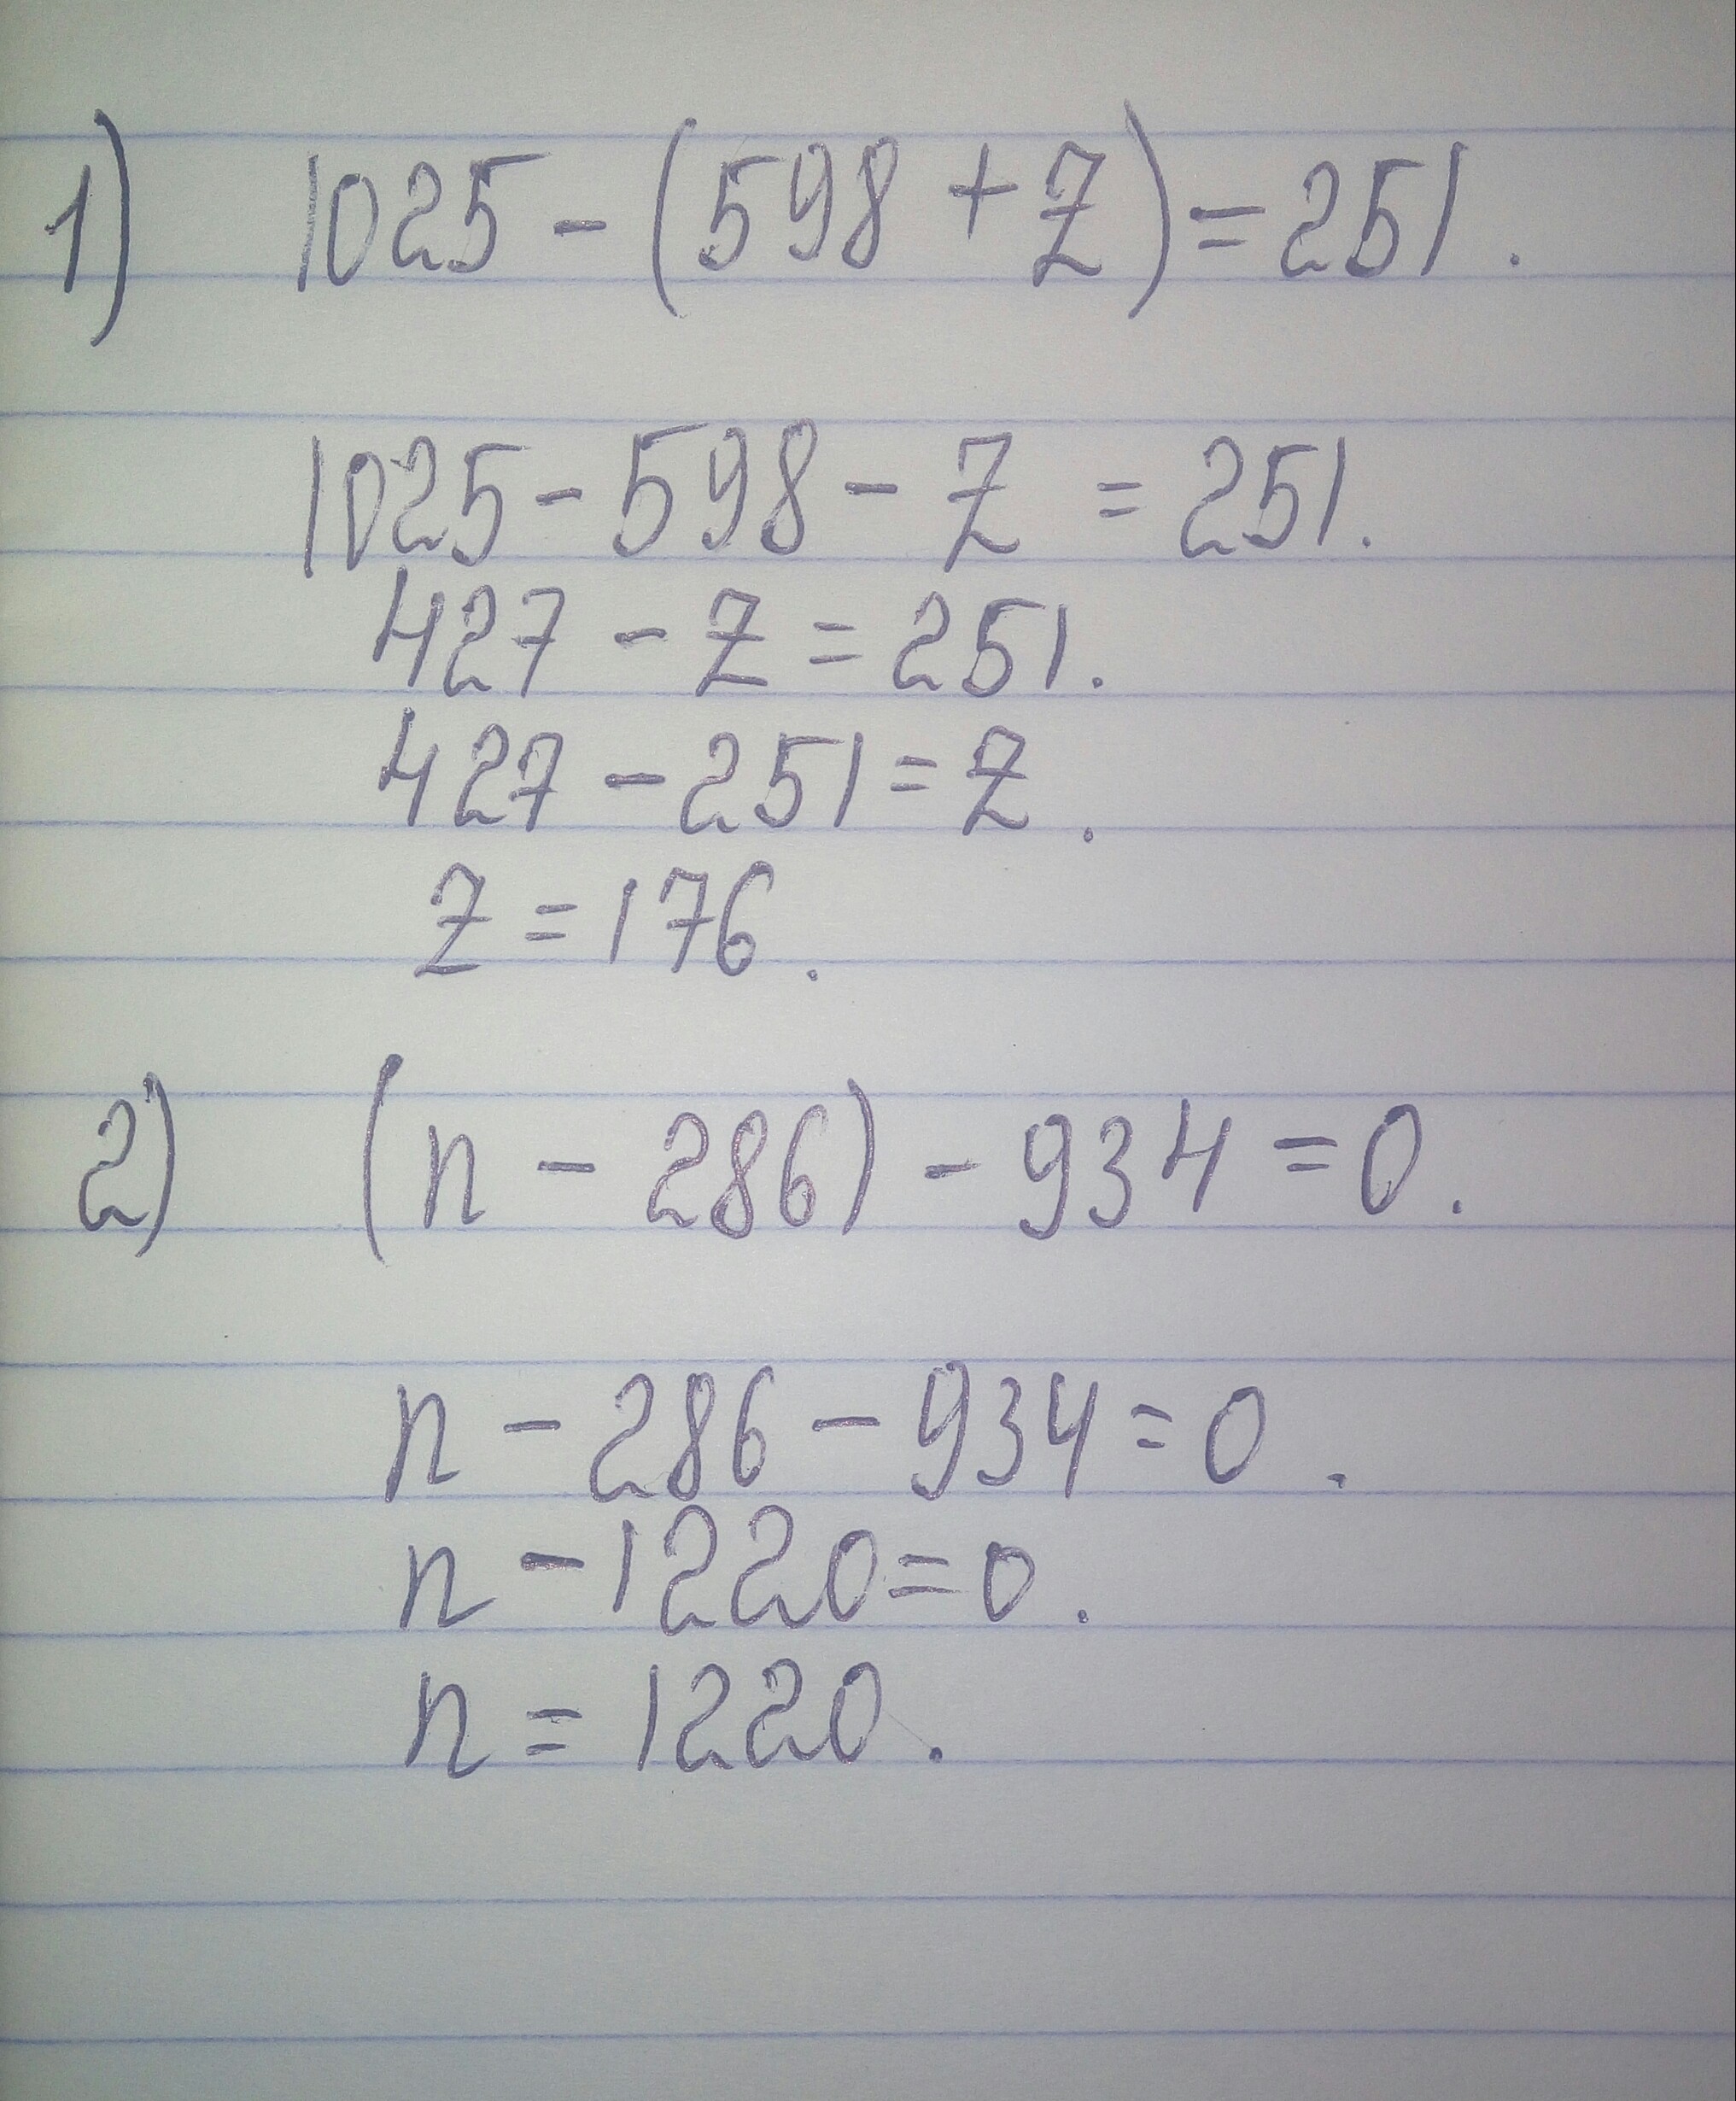 1) 1025 - (598 + z) = 251.
1025 - 598 - z = 251.
427 - z = 251.
427 - 251 = z.
z = 176.
2) (n - 286) - 934 = 0.
n - 286 - 934 = 0.
n - 1220 = 0.
n = 1220.